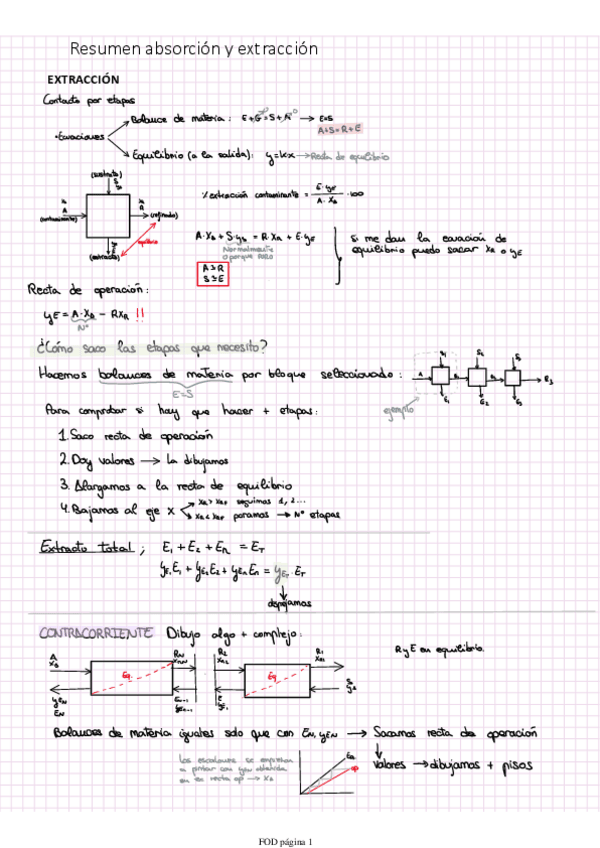 Resumen absorción y extracción
EXTRACCIÓN
Contacto por etapas
• Ecuaciones
Balance de materia: E+G=S+A → E=S
A+S=R+E
Equilibrio (a la salida): y=kx → Recta de equilibrio
(sustrato)
A
(contaminante)
R
(refinado)
equilibrio
(extracto)
% extracción contaminante = E·yE / A·X0 ·100
A·X0 + S·y0 = R·XR + E·yE
Normalmente
0 porque PURO
A≃R
S≃E
Si me dan la ecuación de
equilibrio puedo sacar XR o yE
Recta de operación:
yE = A·X0 - RXR !!
Nº
¿Cómo saco las etapas que necesito?
Hacemos balances de materia por bloque seleccionado:
E=S
ejemplo
A S1 S2 S3
E1 E2 E3 R3
Para comprobar si hay que hacer + etapas:
1. Saco recta de operación
2. Doy valores → la dibujamos
3. Alargamos a la recta de equilibrio
4. Bajamos al eje X
XR > XRF seguimos 1, 2...
XR < XRF paramos → Nº etapas
Extracto total; E1 + E2 + En = ET
yE1E1 + yE2E2 + yEnEn = yET·ET
despejamos
CONTRACORRIENTE Dibujo algo + complejo:
A
X0
RN
XRN
R2
XR2
R1
XR1
R y E en equilibrio.
Eq.
Eq
yEN
EN
EN-1
yEN-1
E
y1
S0
y0
Balances de materia iguales solo que con EN, yEN → Sacamos recta de operación
Valores → dibujamos + pisos
Los escalones se empiezan
a pintar con yEN obtenida
en la recta op → X0
Eq
op
FOD página 1